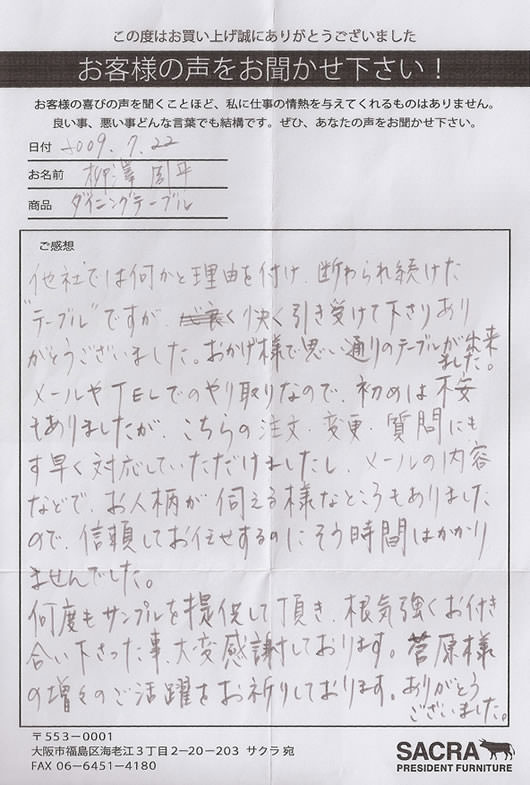 この度はお買い上げ誠にありがとうございました
お客様の声をお聞かせ下さい！
お客様の喜びの声を聞くことほど、私に仕事の情熱を与えてくれるものはありません。
良い事、悪い事どんな言葉でも結構です。ぜひ、あなたの声をお聞かせ下さい。
日付 2009.7.22
お名前 柳澤 周平
商品 ダイニングテーブル
ご感想
他社では何かと理由を付け、断わられ続けた
"テーブル"ですが、くり快く引き受けて下さりあり
がとうございました。おかげ様で思い通りのテーブルが出来
ました。
メールやTELでのやり取りなので、初めは不安
もありましたが、こちらの注文、変更、質問にも
す早く対応していただけましたし、メールの内容
などで、お人柄が伺える様なところもありました
ので、信頼してお任せするのにそう時間はかかり
ませんでした。
何度もサンプルを提供して頂き、根気強くお付き
合い下さった事、大変感謝しております。菅原様
の増々のご活躍をお祈りしております。ありがとう
ございました。
〒553-0001
大阪市福島区海老江3丁目2-20-203 サクラ 宛
FAX 06-6451-4180
SACRA
PRESIDENT FURNITURE